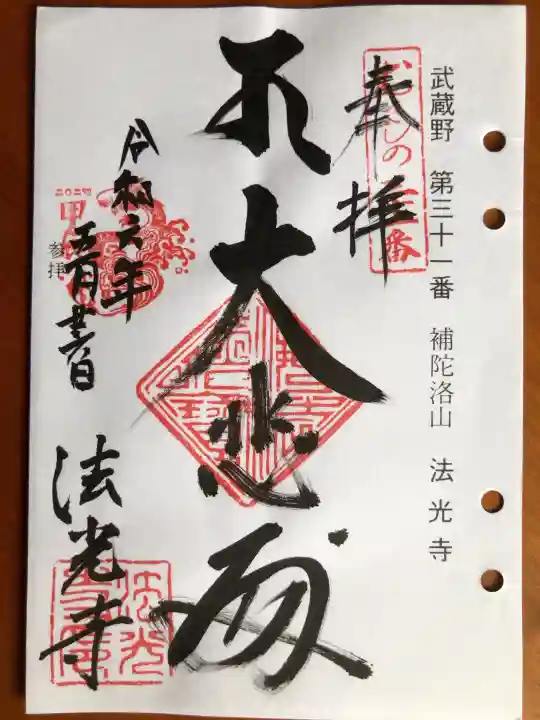 武蔵野 第三十一番 補陀洛山 法光寺
奉拝
大悲殿
令和六年
五月廿三日
参拝
法光寺
二〇二四
甲